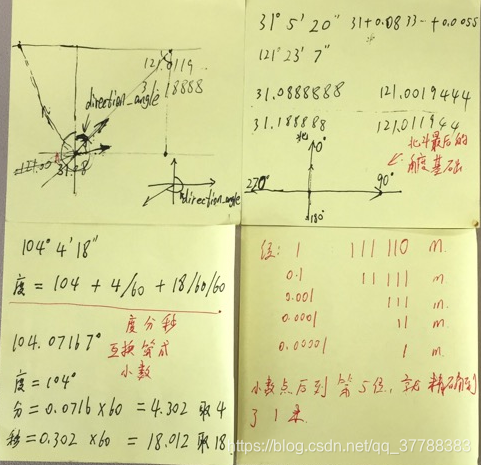 121.0119
31.18888
direction_angle
31.18
direction_angle
31° 5' 20" 31+0.0833 +0.0055
121° 23' 7"
31.0888888 121.0019444
31.188888 121.011944
北 0°
北斗最后的
角度基础
270° 90°
180°
104° 4' 18"
度 = 104 + 4/60 + 18/60/60
104.07167° 度分秒
互换算成
小数
度 = 104°
分 = 0.0716 x 60 = 4.302 取 4
秒 = 0.302 x 60 = 18.012 取 18
1 111 110 m
0.1 11 111 m
0.001 111 m
0.0001 11 m
0.00001 1 m
小数点后到第5位,就精确到
了1米
https://blog.csdn.net/qq_37788383